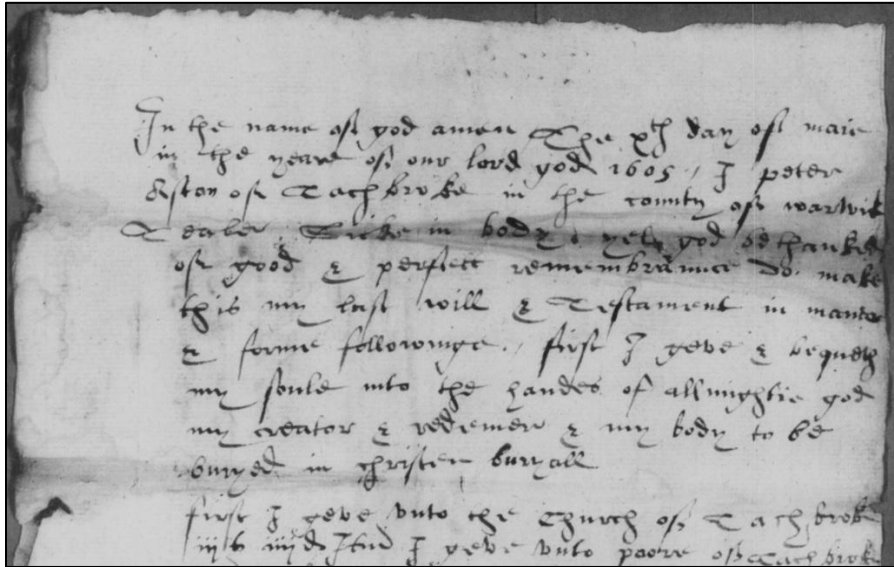 In the name of god amen The xth day of maie
in the yeare of our lord god 1605, I peter
of Tachbroke in the county of warwik
Sicke in body, yet god be thanked
of good & perfect remembraunce do make
this my last will & Testament in maner
& forme followinge, first I geve & bequeth
my soule into the handes of allmightie god
my creator & redemer & my body to be
buryed in christen buryall
first I geve vnto the Church of Tachbroke
iijs iiijd Itm I geve vnto poore of Tachbroke